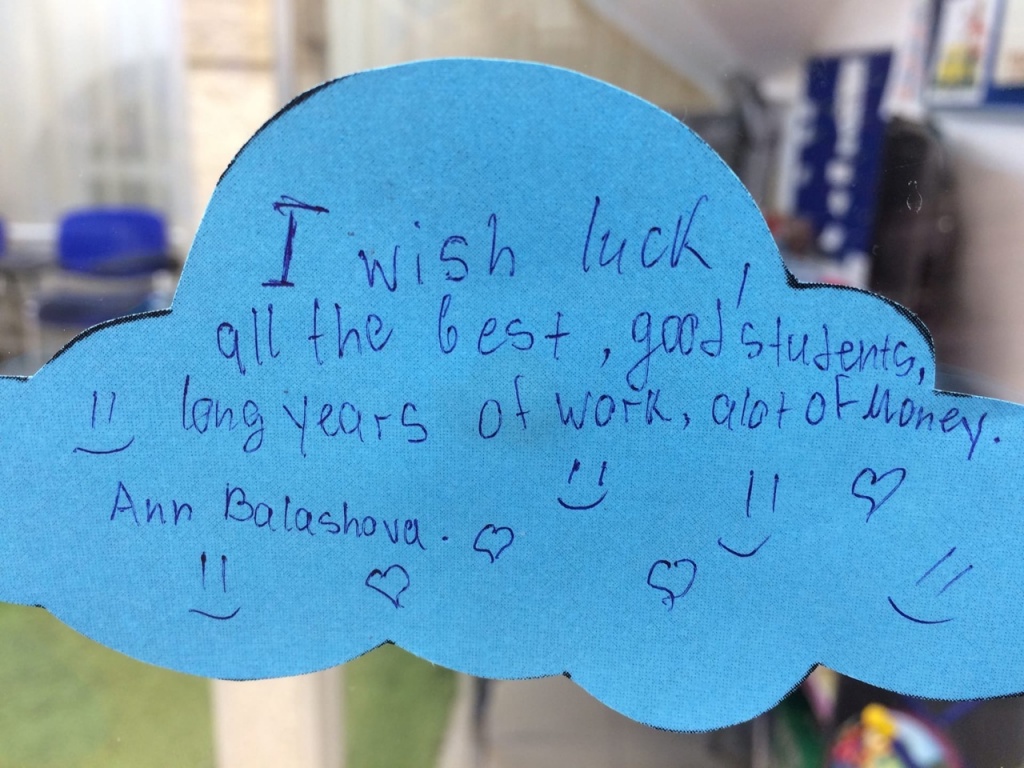 I wish luck,
all the best, good students,
long years of work, alot of Money.
Ann Balashova.